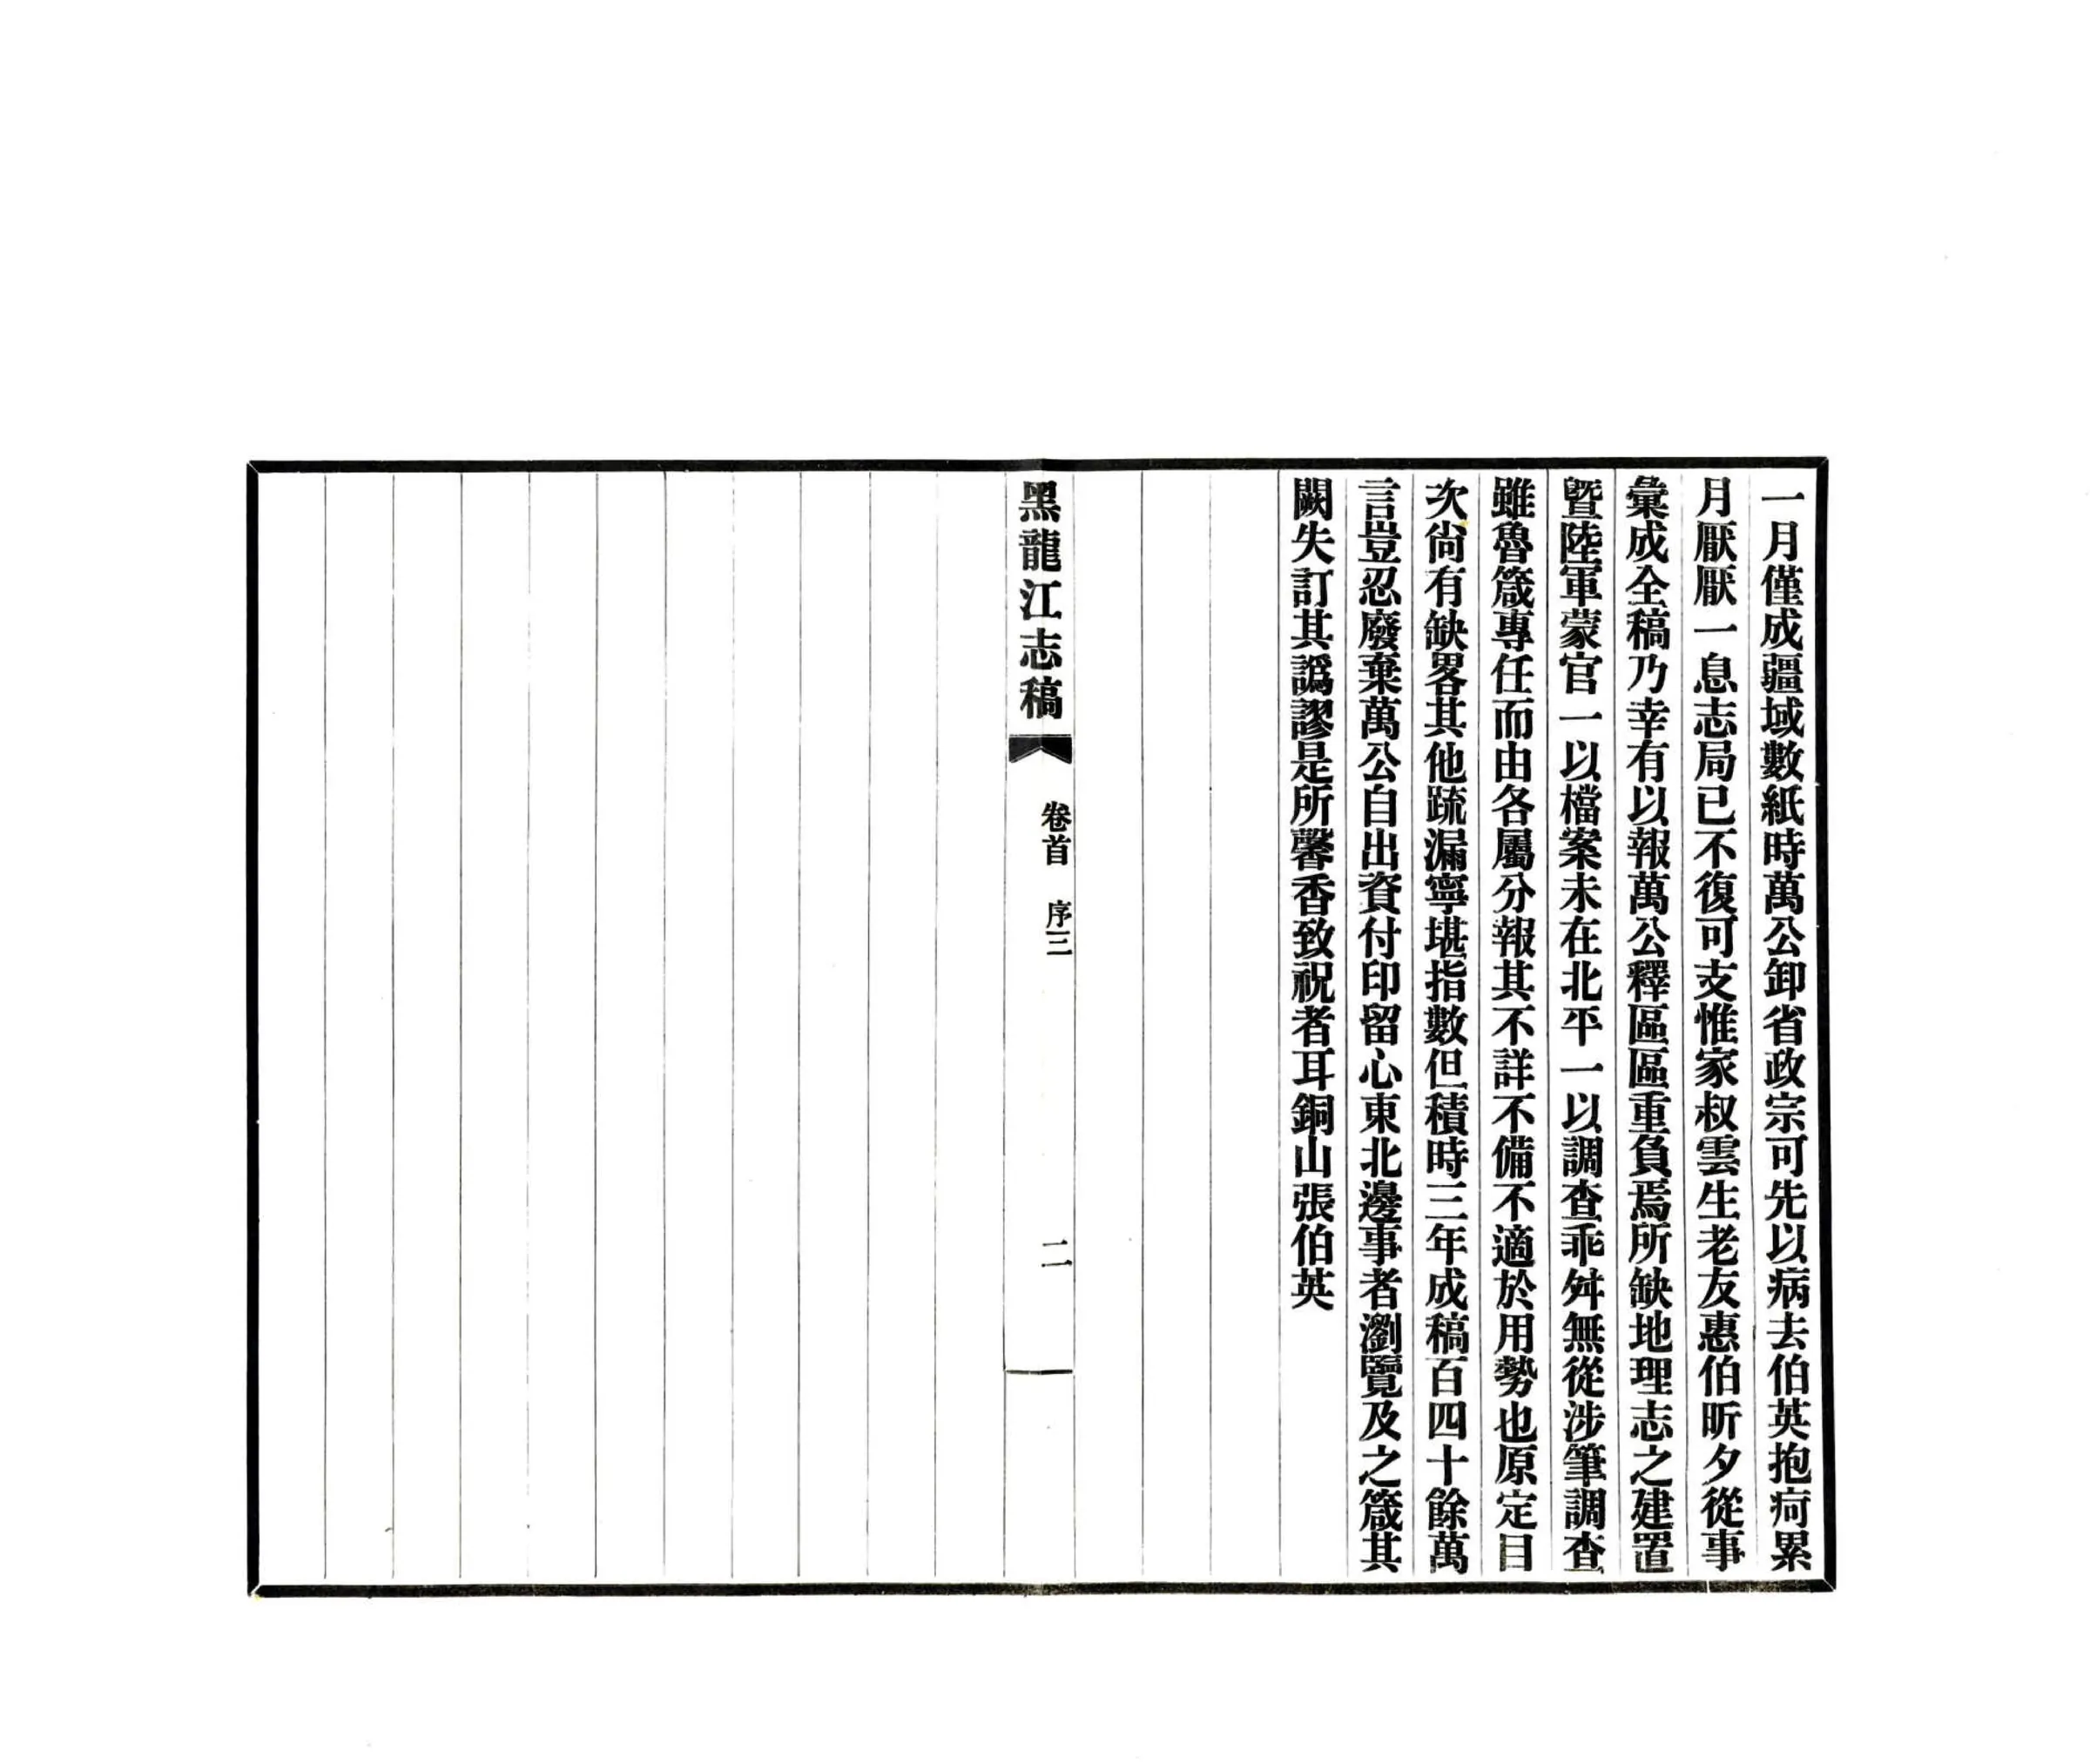 一月僅成疆域數紙時萬公卸省政宗可先以病去伯英抱疴累
月厭厭一息志局已不復可支惟家叔雲生老友惠伯昕夕從事
彙成全稿乃幸有以報萬公釋區區重負焉所缺地理志之建置
曁陸軍蒙官一以檔案未在北平一以調查乖舛無從涉筆調查
雖魯箴專任而由各屬分報其不詳不備不適於用勢也原定目
次尙有缺畧其他䟽漏寧堪指數但積時三年成稿百四十餘萬
言豈忍廢棄萬公自出資付印留心東北邊事者瀏覽及之箴其
闕失訂其譌謬是所馨香致祝者耳銅山張伯英
黑龍江志稿
卷首 序三
二